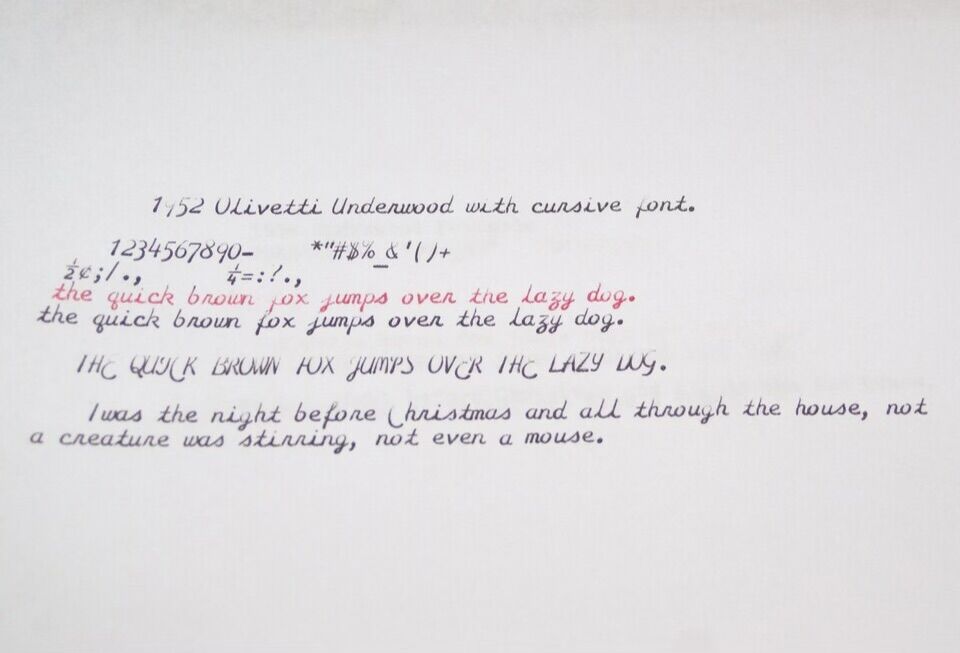 1952 Olivetti Underwood with cursive font.
1234567890- *"#$%_&'()+
½¢;/., ¼=:?.,
the quick brown fox jumps over the lazy dog.
the quick brown fox jumps over the lazy dog.
THE QUICK BROWN FOX JUMPS OVER THE LAZY DOG.
Twas the night before Christmas and all through the house, not
a creature was stirring, not even a mouse.